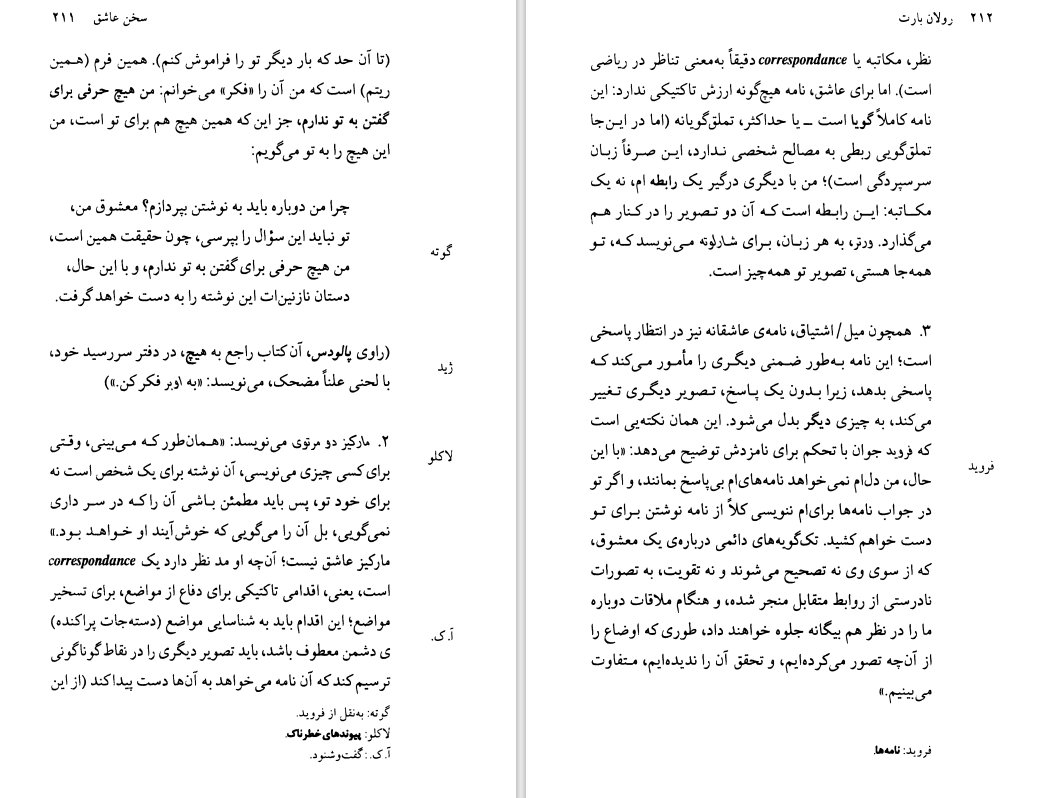 سخن عاشق ۲۱۱
(تا آن حد که بار دیگر تو را فراموش کنم). همین فرم (همین
ریتم) است که من آن را «فکر» می‌خوانم: من هیچ حرفی برای
گفتن به تو ندارم، جز این که همین هیچ هم برای تو است، من
این هیچ را به تو می‌گویم:
چرا من دوباره باید به نوشتن بپردازم؟ معشوق من،
تو نباید این سؤال را بپرسی، چون حقیقت همین است،
گوته
من هیچ حرفی برای گفتن به تو ندارم، و با این حال،
دستان نازنین‌ات این نوشته را به دست خواهد گرفت.
(راوی پالودس، آن کتاب راجع به هیچ، در دفتر سررسید خود،
ژید
با لحنی علناً مضحک، می‌نویسد: «به اوبر فکر کن.»)
۲. مارکیز دو مرتوی می‌نویسد: «همان‌طور که می‌بینی، وقتی
لاکلو
برای کسی چیزی می‌نویسی، آن نوشته برای یک شخص است نه
برای خود تو، پس باید مطمئن باشی آن را که در سر داری
نمی‌گویی، بل آن را می‌گویی که خوش‌آیند او خواهد بود.»
مارکیز عاشق نیست؛ آن‌چه او مد نظر دارد یک correspondance
است، یعنی، اقدامی تاکتیکی برای دفاع از مواضع، برای تسخیر
مواضع؛ این اقدام باید به شناسایی مواضع (دسته‌جات پراکنده)
آ.ک.
ی دشمن معطوف باشد، باید تصویر دیگری را در نقاط گوناگونی
ترسیم کند که آن نامه می‌خواهد به آن‌ها دست پیدا کند (از این
گوته: به‌نقل از فروید.
لاکلو: پیوندهای خطرناک.
آ.ک.: گفت‌وشنود.
۲۱۲ رولان بارت
نظر، مکاتبه یا correspondance دقیقاً به‌معنی تناظر در ریاضی
است). اما برای عاشق، نامه هیچ‌گونه ارزش تاکتیکی ندارد: این
نامه کاملاً گویا است ــ یا حداکثر، تملق‌گویانه (اما در این‌جا
تملق‌گویی ربطی به مصالح شخصی ندارد، این صرفاً زبان
سرسپردگی است)؛ من با دیگری درگیر یک رابطه ام، نه یک
مکاتبه: این رابطه است که آن دو تصویر را در کنار هم
می‌گذارد. ورتر، به هر زبان، برای شارلوته می‌نویسد که، تو
همه‌جا هستی، تصویر تو همه‌چیز است.
۳. همچون میل/اشتیاق، نامه‌ی عاشقانه نیز در انتظار پاسخی
است؛ این نامه به‌طور ضمنی دیگری را مأمور می‌کند که
پاسخی بدهد، زیرا بدون یک پاسخ، تصویر دیگری تغییر
می‌کند، به چیزی دیگر بدل می‌شود. این همان نکته‌یی است
که فروید جوان با تحکم برای نامزدش توضیح می‌دهد: «با این
فروید
حال، من دل‌ام نمی‌خواهد نامه‌های‌ام بی‌پاسخ بمانند، و اگر تو
در جواب نامه‌ها برای‌ام ننویسی کلاً از نامه نوشتن برای تو
دست خواهم کشید. تک‌گویه‌های دائمی درباره‌ی یک معشوق،
که از سوی وی نه تصحیح می‌شوند و نه تقویت، به تصورات
نادرستی از روابط متقابل منجر شده، و هنگام ملاقات دوباره
ما را در نظر هم بیگانه جلوه خواهند داد، طوری که اوضاع را
از آن‌چه تصور می‌کرده‌ایم، و تحقق آن را ندیده‌ایم، متفاوت
می‌بینیم.»
فروید: نامه‌ها.